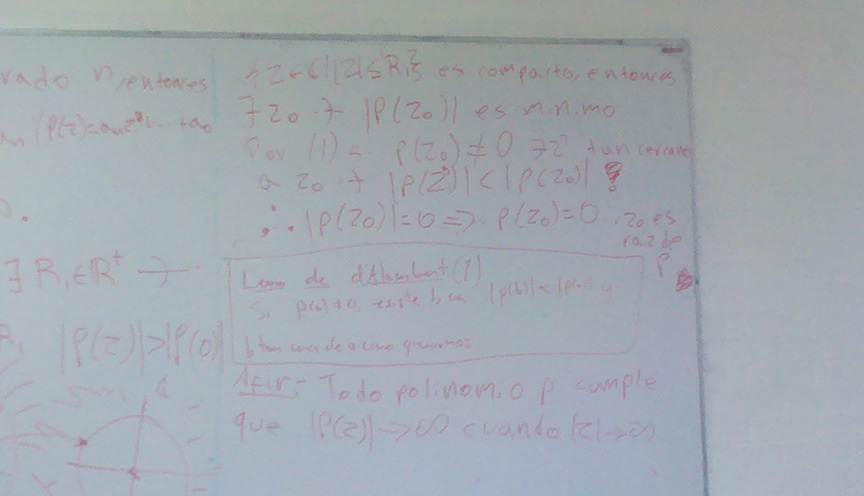 rado n, entonces
(P(z)=anz^n+...+a0
∃ R1∈ℝ+ ∋.
|P(z)|>|P(0)|
{z∈ℂ||z|≤R1} es compacto, entonces
∃z0 ∋ |P(z0)| es mínimo
Por (1) P(z0)≠0 ∃z' tan cercano
a z0 ∋ |P(z')|<|P(z0)| !
∴ |P(z0)|=0 => P(z0)=0 . z0 es
raíz de
P
Lema de d'Alambert (1)
Si p(a)≠0, existe b con |p(b)|<|p(a)| y
b tan cerca de a como queramos
Afir:- Todo polinomio p cumple
que |P(z)|→∞ cuando |z|→∞